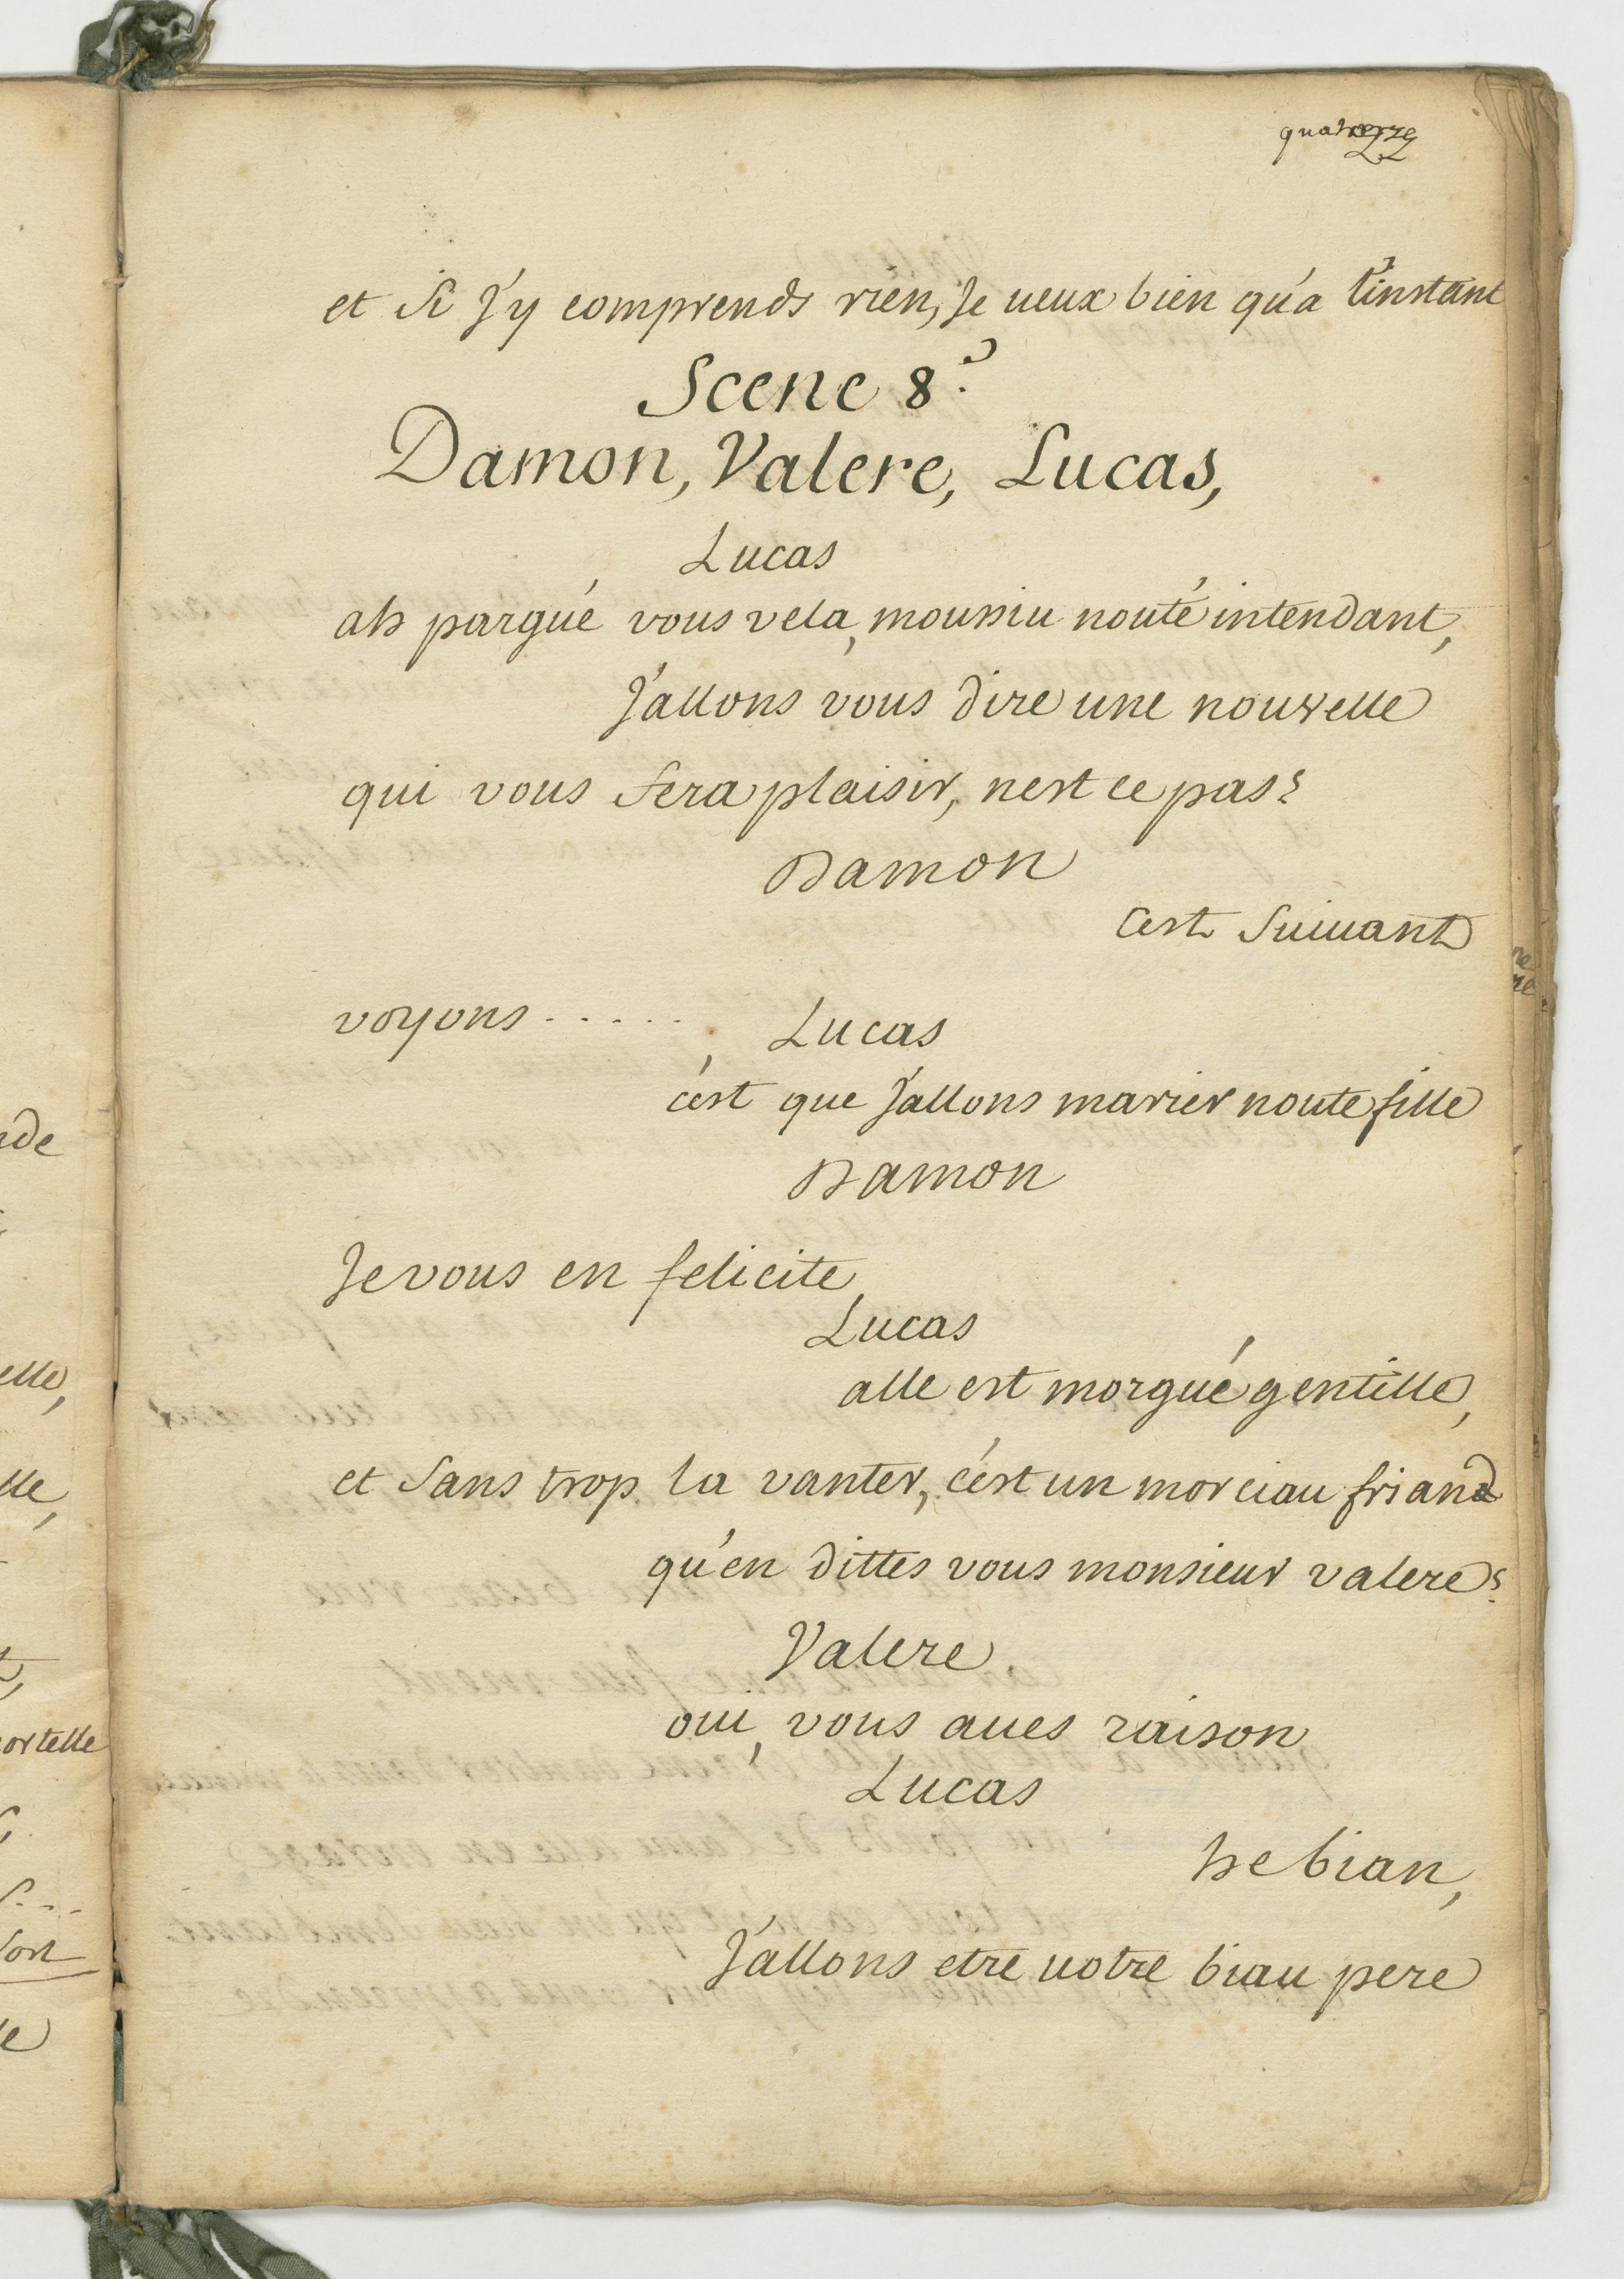 quatorze
et si j'y comprends rien, je ueux bien qu'a l'instant
Scene 8.e
Damon, Valere, Lucas,
Lucas
ah pargué vous vela, moussiu nouté intendant,
j'allons vous dire une nouvelle
qui vous fera plaisir, nest ce pas?
Damon
C'est suiuant
voyons......
Lucas
c'est que j'allons marier noute fille
Damon
Je vous en felicite,
Lucas
alle est morgué gentille,
et sans trop la vanter, c'est un morciau friand
qu'en dittes vous monsieur valere?
Valere
oui, vous aues raison
Lucas
he bian,
j'allons etre uotre biau pere
nde
elle,
lle,
ortelle